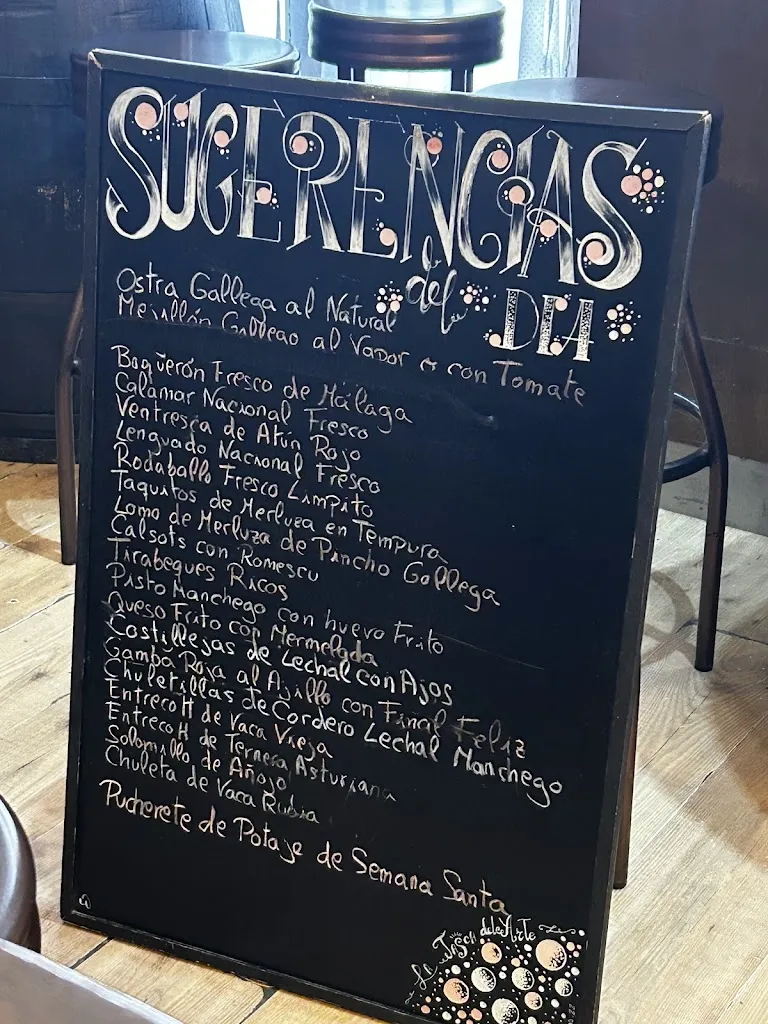 SUGERENCIAS
del
DIA
Ostra Gallega al Natural
Mejillón Gallego al Vapor o con Tomate
Boquerón Fresco de Málaga
Calamar Nacional Fresco
Ventresca de Atún Rojo
Lenguado Nacional Fresco
Rodaballo Fresco Limpito
Taquitos de Merluza en Tempura
Lomo de Merluza de Pincho Gallega
Calsots con Romescu
Tirabeques Ricos
Pisto Manchego con huevo Frito
Queso Frito con Mermelada
Costillejas de Lechal con Ajos
Gamba Roja al Ajillo con Final Feliz
Chuletillas de Cordero Lechal Manchego
EntrecoH de Vaca Vieja
EntrecoH de Ternera Asturiana
Solomillo de Añojo
Chuleta de Vaca Rubia
Pucherete de Potaje de Semana Santa
La Tasca del Arte